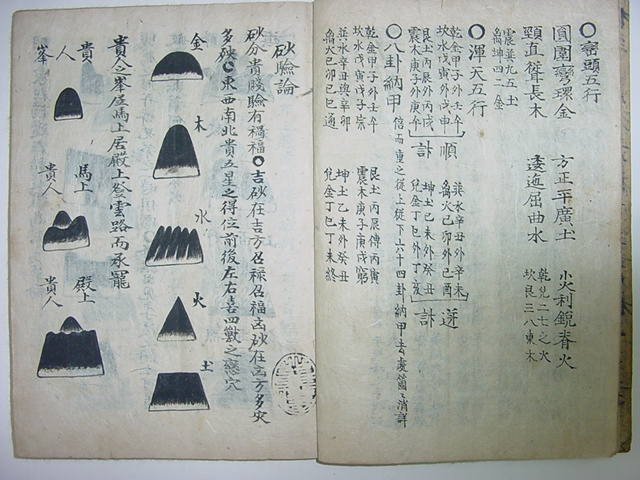 巒頭五行
圓圍彎環金 方正平廣土 尖利銳者火
頸直聳長木 逶迤屈曲水
震巽九五土
乾兌二七之火
離坤四二金
坎艮三八東木
渾天五行
乾金甲子外壬午
坎水戊寅外戊申
順
艮土丙辰外丙戌
震木庚子外庚午
計
巽水辛丑外辛未
離火己卯外己酉
逆
坤土乙未外癸丑
兌金丁巳外丁亥
計
八卦納甲
倍而重之從上從下六十四卦納甲
乾金甲子外壬午
坎水戊寅戊子宗
艮土丙辰傳丙寅
震木庚子庚戌窮
巽水辛丑與辛卯
離火己卯己巳通
坤土乙未外癸丑
兌金丁巳丁未終
砂驗論
砂分貴賤驗有禍福
吉砂在吉方召福凶砂在凶方多災
多殃
東西南北貴五星之得位前後左右喜四獸之戀穴
金
木
水
火
土
貴人之峯
馬上居殿上登雲路而承寵
貴人峯
馬上貴人
殿上貴人